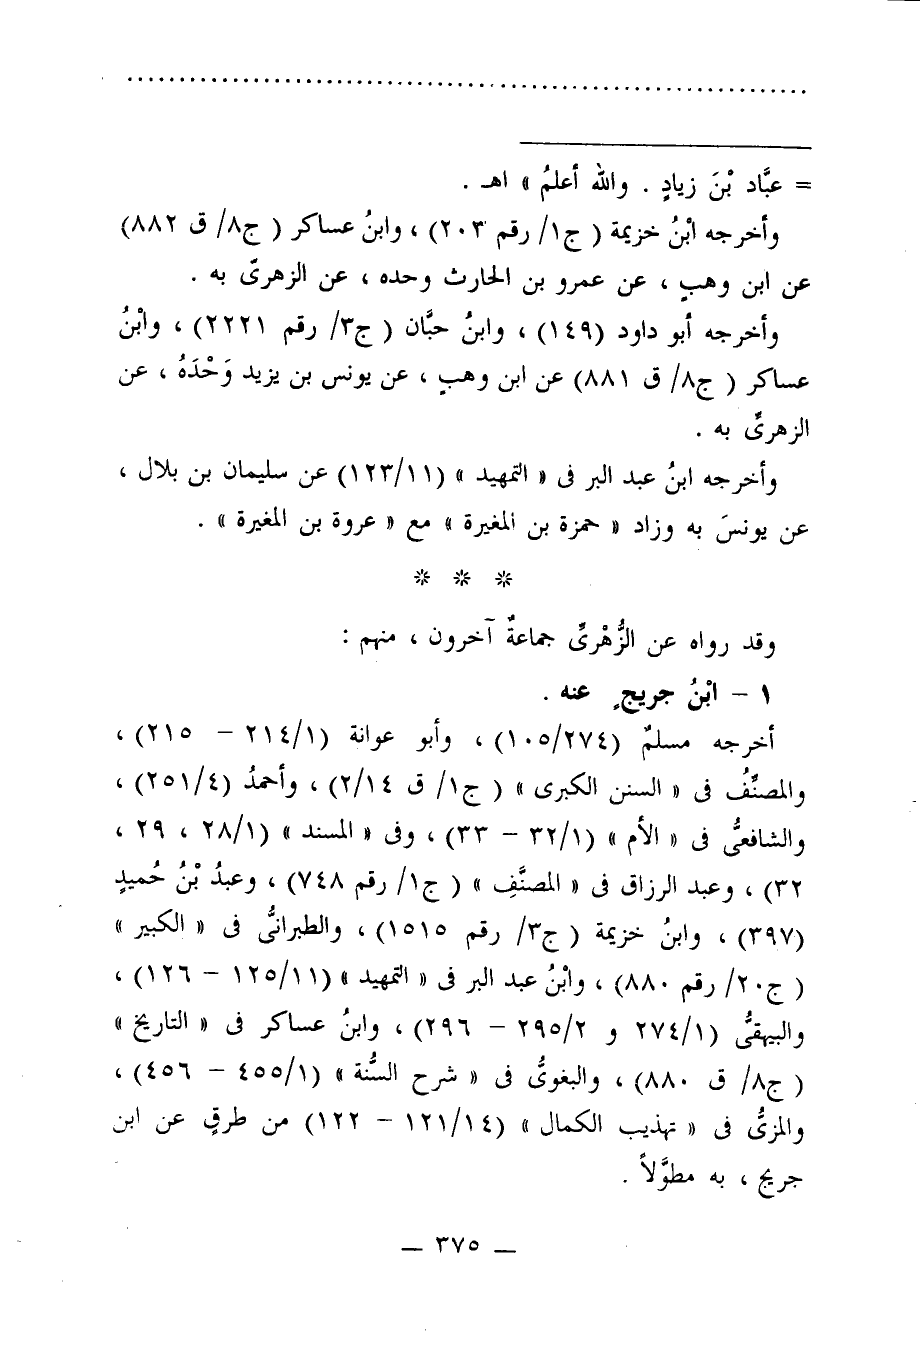 ................................................................
= عبَّاد بْنَ زيادٍ . والله أعلمُ » اهـ .
وأخرجه ابْنُ خزيمة ( ج١/ رقم ٢٠٣) ، وابنُ عساكر ( ج٨/ ق ٨٨٢)
عن ابن وهبٍ ، عن عمرو بن الحارث وحده ، عن الزهرىّ به .
وأخرجه أبو داود (١٤٩) ، وابنُ حبَّان ( ج٣/ رقم ٢٢٢١) ، وابْنُ
عساكر ( ج٨/ ق ٨٨١) عن ابن وهبٍ ، عن يونس بن يزيد وَحْدَهُ ، عن
الزهرىِّ به .
وأخرجه ابنُ عبد البر فى « التمهيد » (١٢٣/١١) عن سليمان بن بلال ،
عن يونسَ به وزاد « حمزة بن المغيرة » مع « عروة بن المغيرة » .
* * *
وقد رواه عن الزُّهْرىِّ جماعةٌ آخرون ، منهم :
١ – ابْنُ جريجٍ عنه .
أخرجه مسلمٌ (١٠٥/٢٧٤) ، وأبو عوانة (٢١٤/١ – ٢١٥) ،
والمصنِّفُ فى « السنن الكبرى » ( ج١/ ق ٢/١٤) ، وأحمدُ (٢٥١/٤) ،
والشافعىُّ فى « الأم » (٣٢/١ – ٣٣) ، وفى « المسند » (٢٨/١ ، ٢٩ ،
٣٢) ، وعبد الرزاق فى « المصنَّفِ » ( ج١/ رقم ٧٤٨) ، وعبدُ بْنُ حُميدٍ
(٣٩٧) ، وابنُ خزيمة ( ج٣/ رقم ١٥١٥) ، والطبرانىُّ فى « الكبير »
( ج٢٠/ رقم ٨٨٠) ، وابْنُ عبد البر فى « التمهيد » (١٢٥/١١ – ١٢٦) ،
والبيهقىُّ (٢٧٤/١ و ٢٩٥/٢ – ٢٩٦) ، وابنُ عساكر فى « التاريخ »
( ج٨/ ق ٨٨٠) ، والبغوىُّ فى « شرح السُّنة » (٤٥٥/١ – ٤٥٦) ،
والمزىُّ فى « تهذيب الكمال » (١٢١/١٤ – ١٢٢) من طرقٍ عن ابن
جريج ، به مطوَّلاً .
— ٣٧٥ —